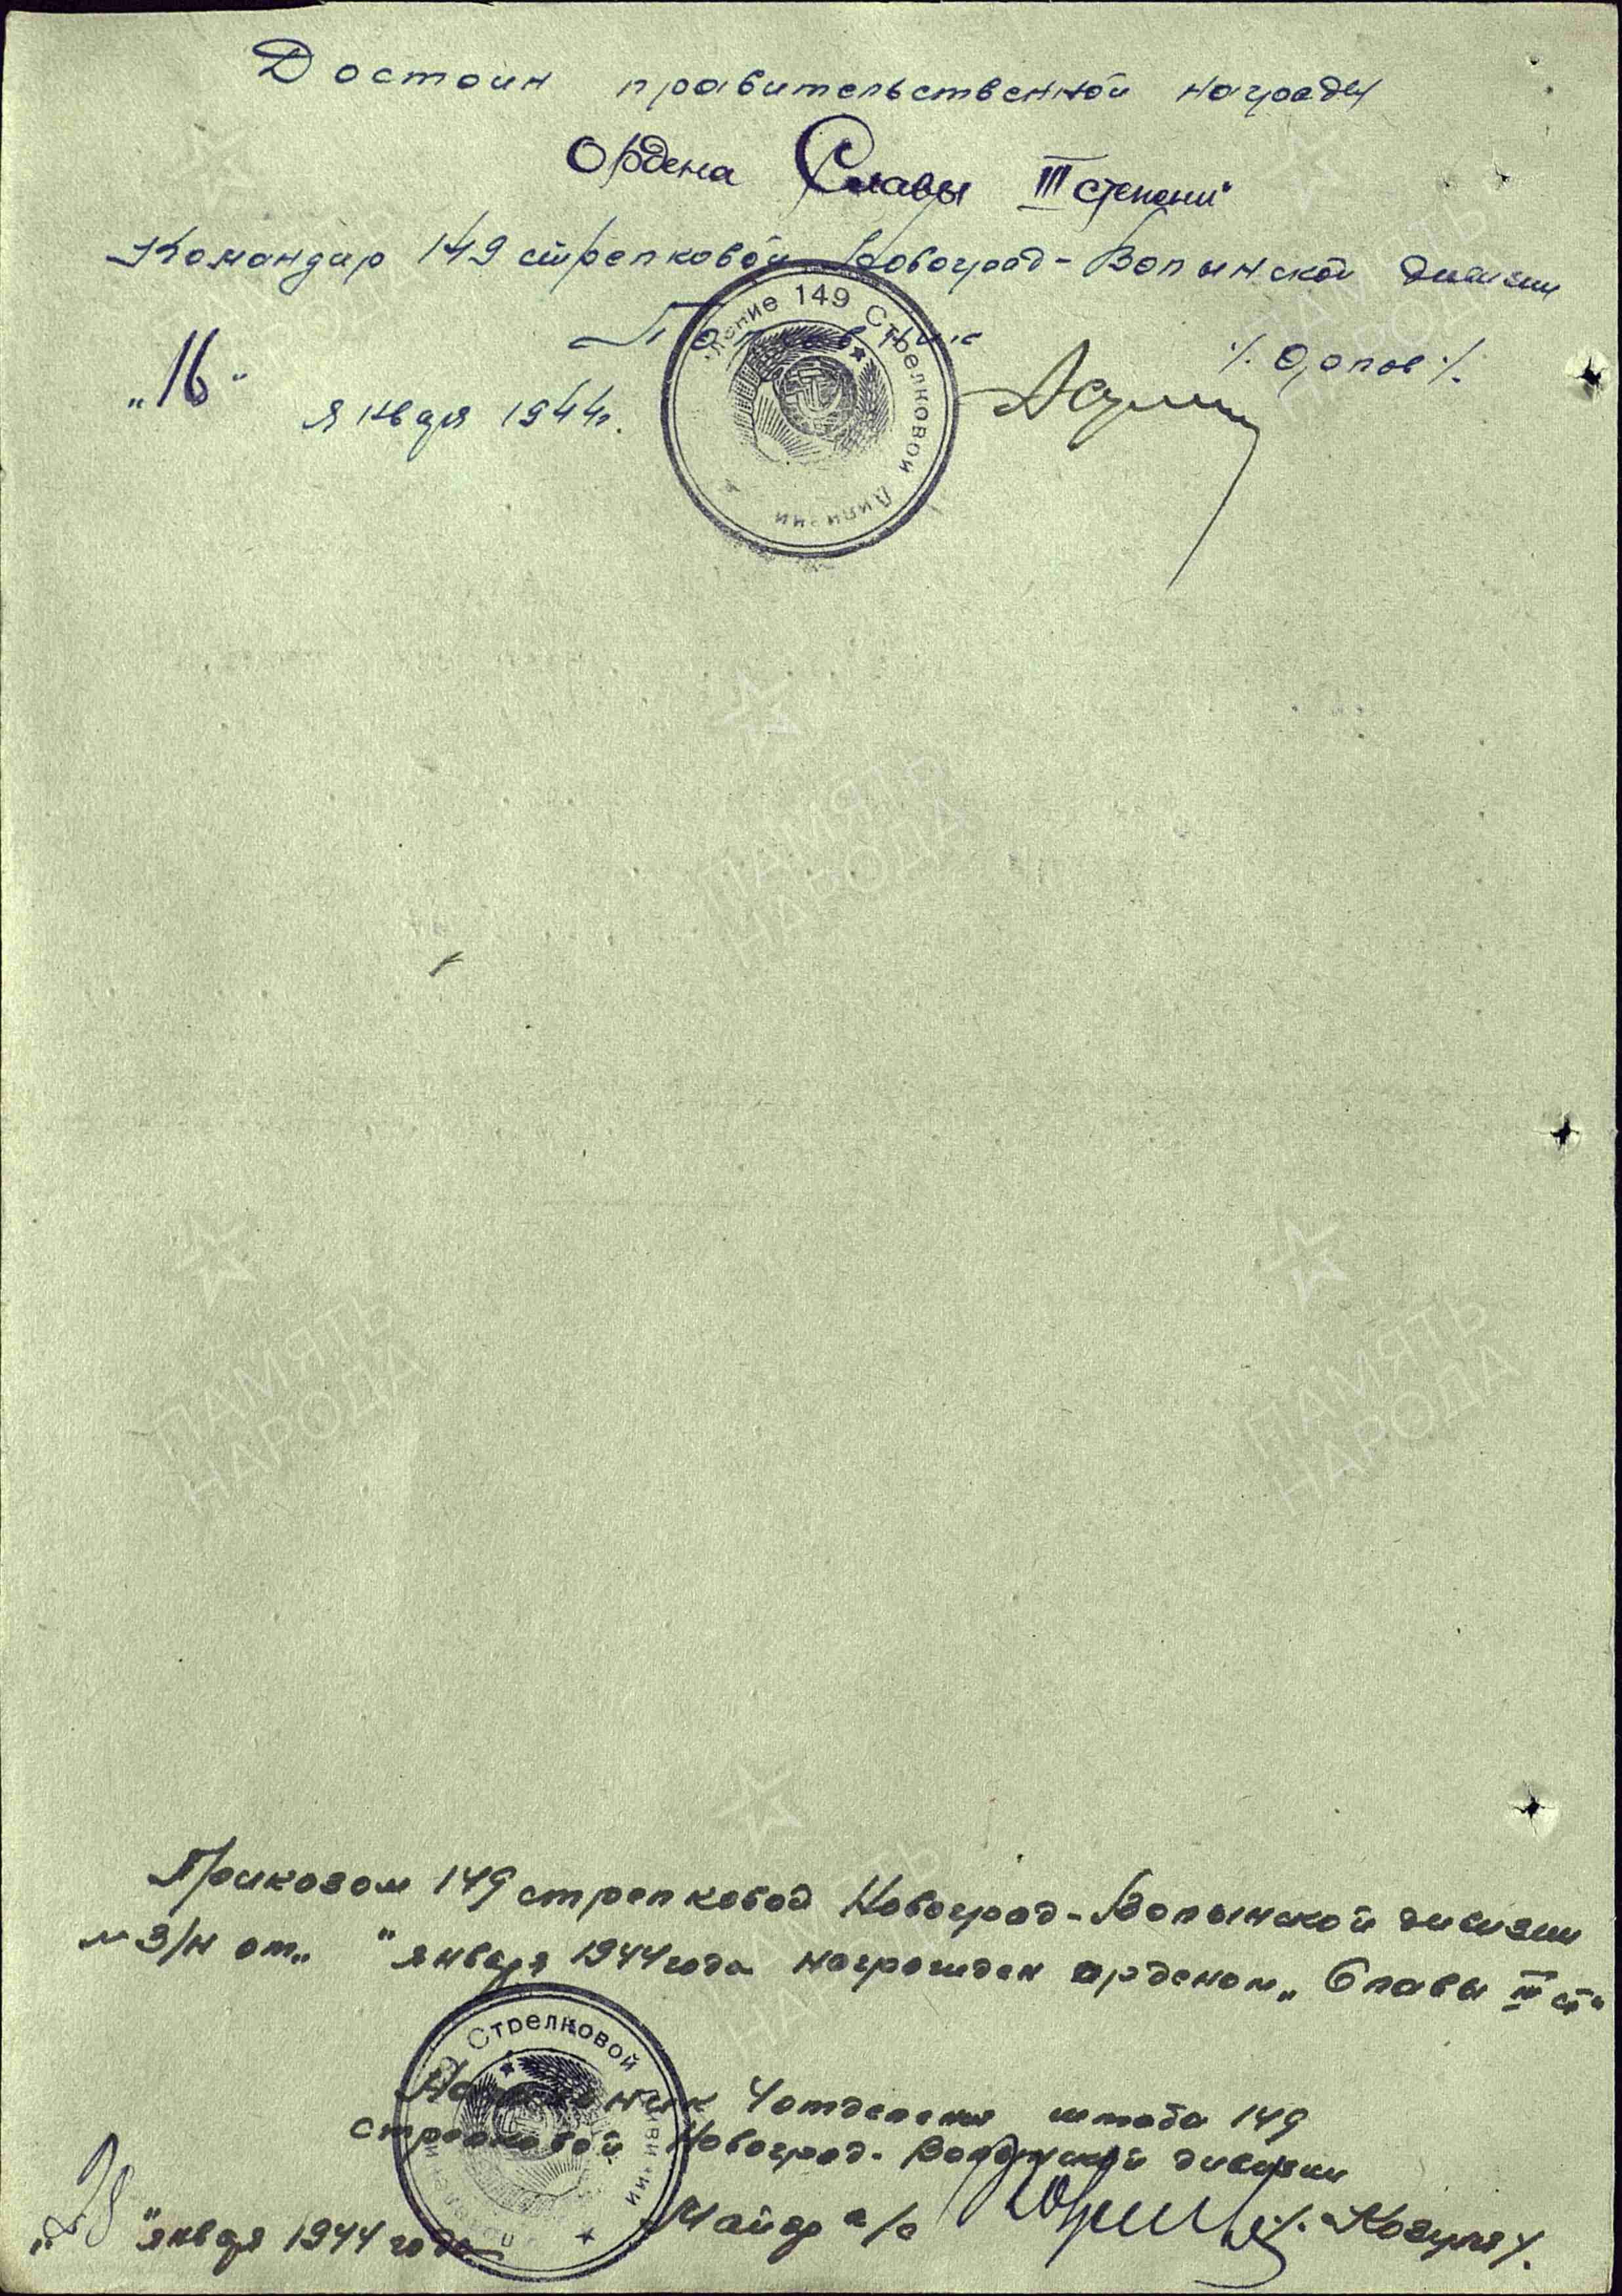 Достоин правительственной награды
Ордена Славы III степени
Командир 149 стрелковой Новоград-Волынской дивизии
Полковник
/. Орлов /.
„16“ января 1944г.
149 Стрелковой Дивизии
ПАМЯТЬ
НАРОДА
ПАМЯТЬ
НАРОДА
ПАМЯТЬ
НАРОДА
ПАМЯТЬ
НАРОДА
Приказом 149 стрелковой Новоград-Волынской дивизии
н/н от „ “ января 1944 года награжден орденом „Славы III ст“
Стрелковой
Начальник 4 отделения штаба 149
стрелковой Новоград-Волынской дивизии
Майор а/с /. Когут /.
„28“ января 1944 года